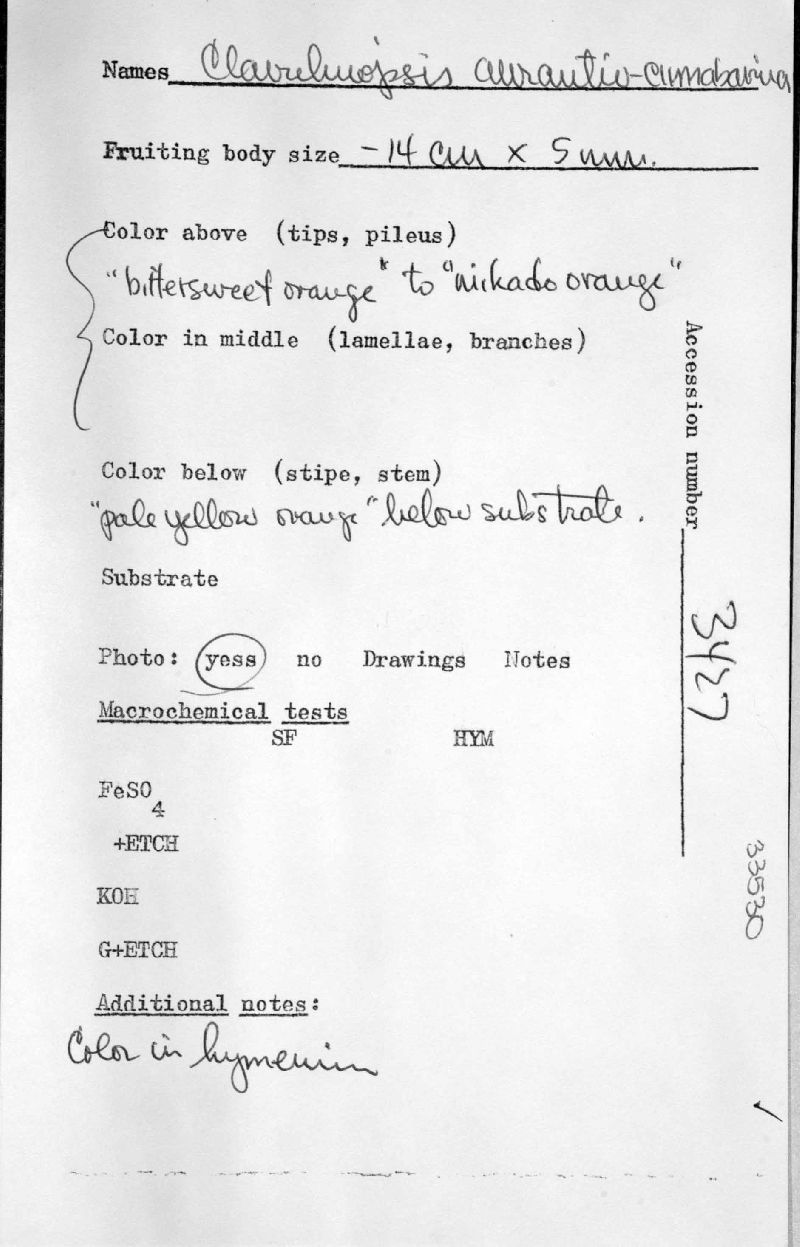 Names Clavulinopsis aurantio-cinnabarina
Fruiting body size -14 cm x 5 mm.
Color above (tips, pileus)
"bittersweet orange" to "mikado orange"
Color in middle (lamellae, branches)
Color below (stipe, stem)
"pale yellow orange" below substrate.
Substrate
Photo: yess no Drawings Notes
Macrochemical tests
SF HYM
FeSO4
+ETCH
KOH
G+ETCH
Additional notes:
Color in hymenium
Accession number 3427
33530